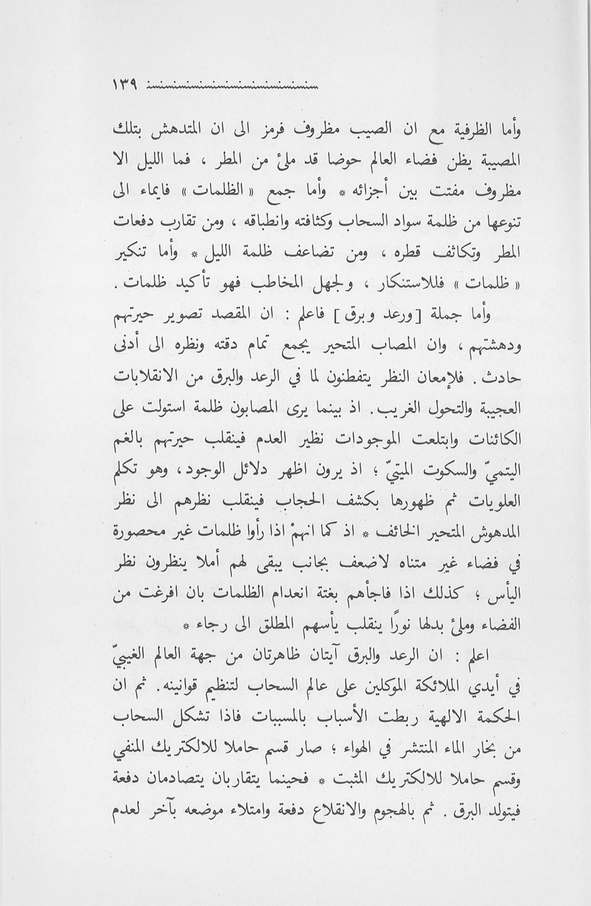 ١٣٩
وأما الظرفية مع ان الصيب مظروف فرمز الى ان المتدهش بتلك
المصيبة يظن فضاء العالم حوضا قد ملئ من المطر ، فما الليل الا
مظروف مفتت بين أجزائه * وأما جمع « الظلمات » فايماء الى
تنوعها من ظلمة سواد السحاب وكثافته وانطباقه ، ومن تقارب دفعات
المطر وتكاثف قطره ، ومن تضاعف ظلمة الليل * وأما تنكير
« ظلمات » فللاستنكار ، ولجهل المخاطب فهو تأكيد ظلمات .
وأما جملة [ ورعد وبرق ] فاعلم : ان المقصد تصوير حيرتهم
ودهشتهم ، وان المصاب المتحير يجمع تمام دقته ونظره الى أدنى
حادث . فلإمعان النظر يتفطنون لما في الرعد والبرق من الانقلابات
العجيبة والتحول الغريب . اذ بينما يرى المصابون ظلمة استولت على
الكائنات وابتلعت الموجودات نظير العدم فينقلب حيرتهم بالغم
اليتميّ والسكوت الميتيّ ؛ اذ يرون اظهر دلائل الوجود ، وهو تكلم
العلويات ثم ظهورها بكشف الحجاب فينقلب نظرهم الى نظر
المدهوش المتحير الخائف * اذ كما انهمْ اذا رأوا ظلمات غير محصورة
في فضاء غير متناه لاضعف بجانب يبقى لهم أملا ينظرون نظر
اليأس ؛ كذلك اذا فاجأهم بغتة انعدام الظلمات بان افرغت من
الفضاء وملئ بدلها نورًا ينقلب يأسهم المطلق الى رجاء *
اعلم : ان الرعد والبرق آيتان ظاهرتان من جهة العالم الغيبيّ
في أيدي الملائكة الموكلين على عالم السحاب لتنظيم قوانينه . ثم ان
الحكمة الالهية ربطت الأسباب بالمسببات فاذا تشكل السحاب
من بخار الماء المنتشر في الهواء ؛ صار قسم حاملا للالكتريك المنفي
وقسم حاملا للالكتريك المثبت * فحينما يتقاربان يتصادمان دفعة
فيتولد البرق . ثم بالهجوم والانقلاع دفعة وامتلاء موضعه بآخر لعدم